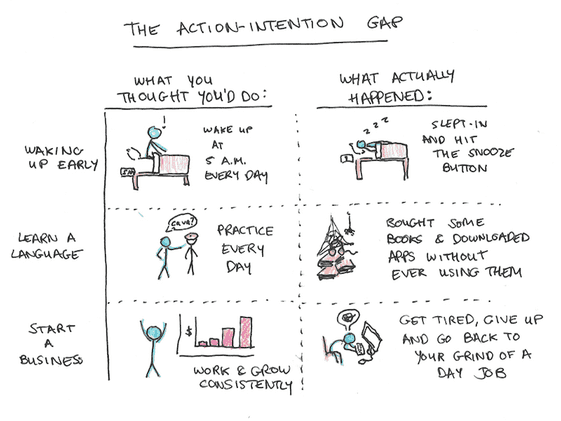 THE ACTION-INTENTION GAP
WHAT YOU
THOUGHT YOU'D DO:
WHAT ACTUALLY
HAPPENED:
WAKING
UP EARLY
WAKE UP
AT
5 A.M.
EVERY DAY
Z Z Z
SLEPT-IN
AND HIT
THE SNOOZE
BUTTON
LEARN A
LANGUAGE
ÇA VA?
PRACTICE
EVERY
DAY
BOUGHT SOME
BOOKS & DOWNLOADED
APPS WITHOUT
EVER USING THEM
START
A
BUSINESS
$
WORK & GROW
CONSISTENTLY
GET TIRED, GIVE UP
AND GO BACK TO
YOUR GRIND OF A
DAY JOB